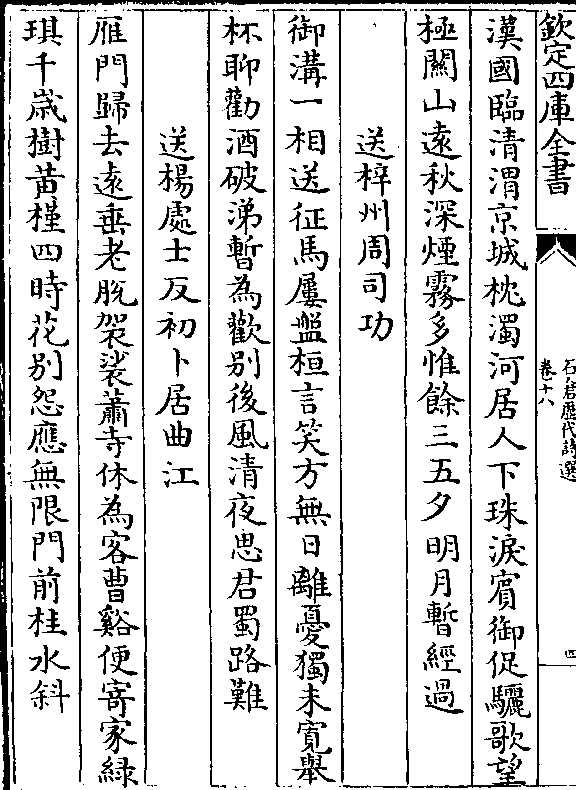 欽定四庫全書
石倉歷代詩選
卷十八
四
漢國臨清渭京城枕濁河居人下珠淚賓御促驪歌望
極關山遠秋深煙霧多惟餘三五夕明月暫經過
送梓州周司功
御溝一相送征馬屢盤桓言笑方無日離憂獨未寬舉
杯聊勸酒破涕暫為歡别後風清夜思君蜀路難
送楊處士反初卜居曲江
雁門歸去遠垂老脫袈裟蕭寺休為客曹谿便寄家綠
琪千歲樹黃槿四時花别怨應無限門前桂水斜